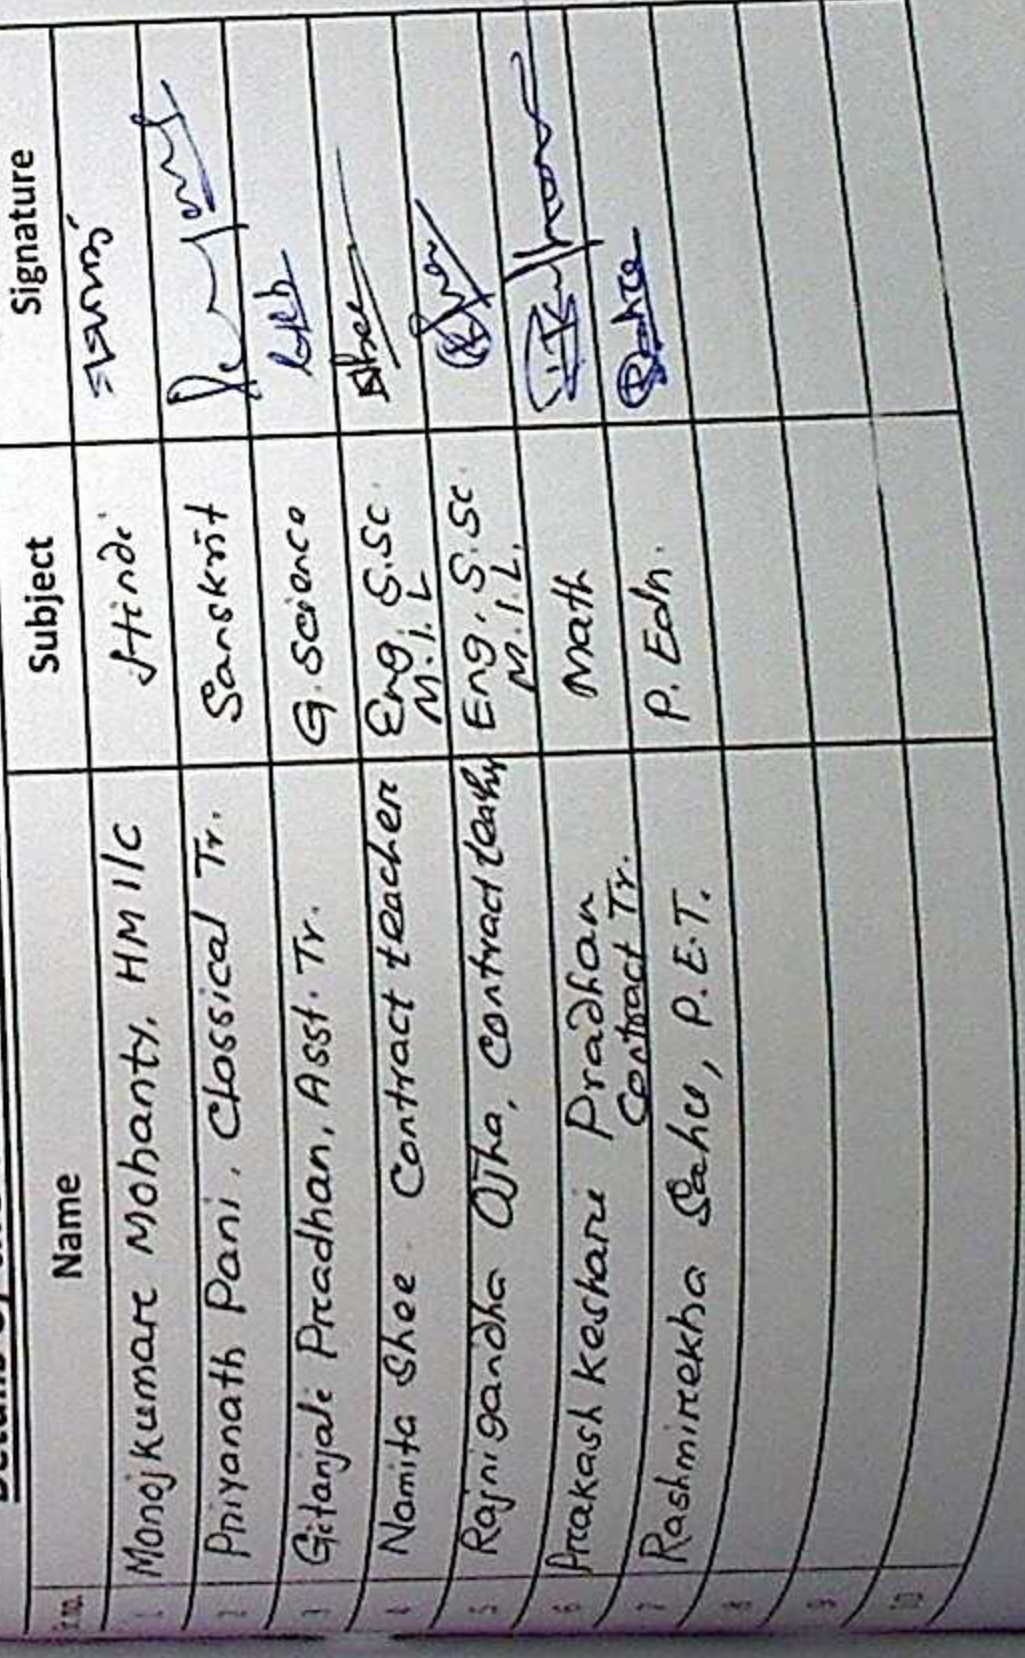 Name Subject Signature
1 Monojkumare Mohanty, HM I/C Hindi
2 Priyanath Pani, Classical Tr. Sanskrit
3 Gitanjali Preadhan, Asst. Tr. G. Science
4 Namita Shee. Contract teacher Eng. S.Sc.
M.I.L
5 Rajnigandha Ojha, Contract teacher Eng. S.Sc.
M.I.L.
6 Prakash Keshari Pradhan Math
Contract Tr.
7 Rashmirekha Sahu, P.E.T. P. Edn.
8
9
10